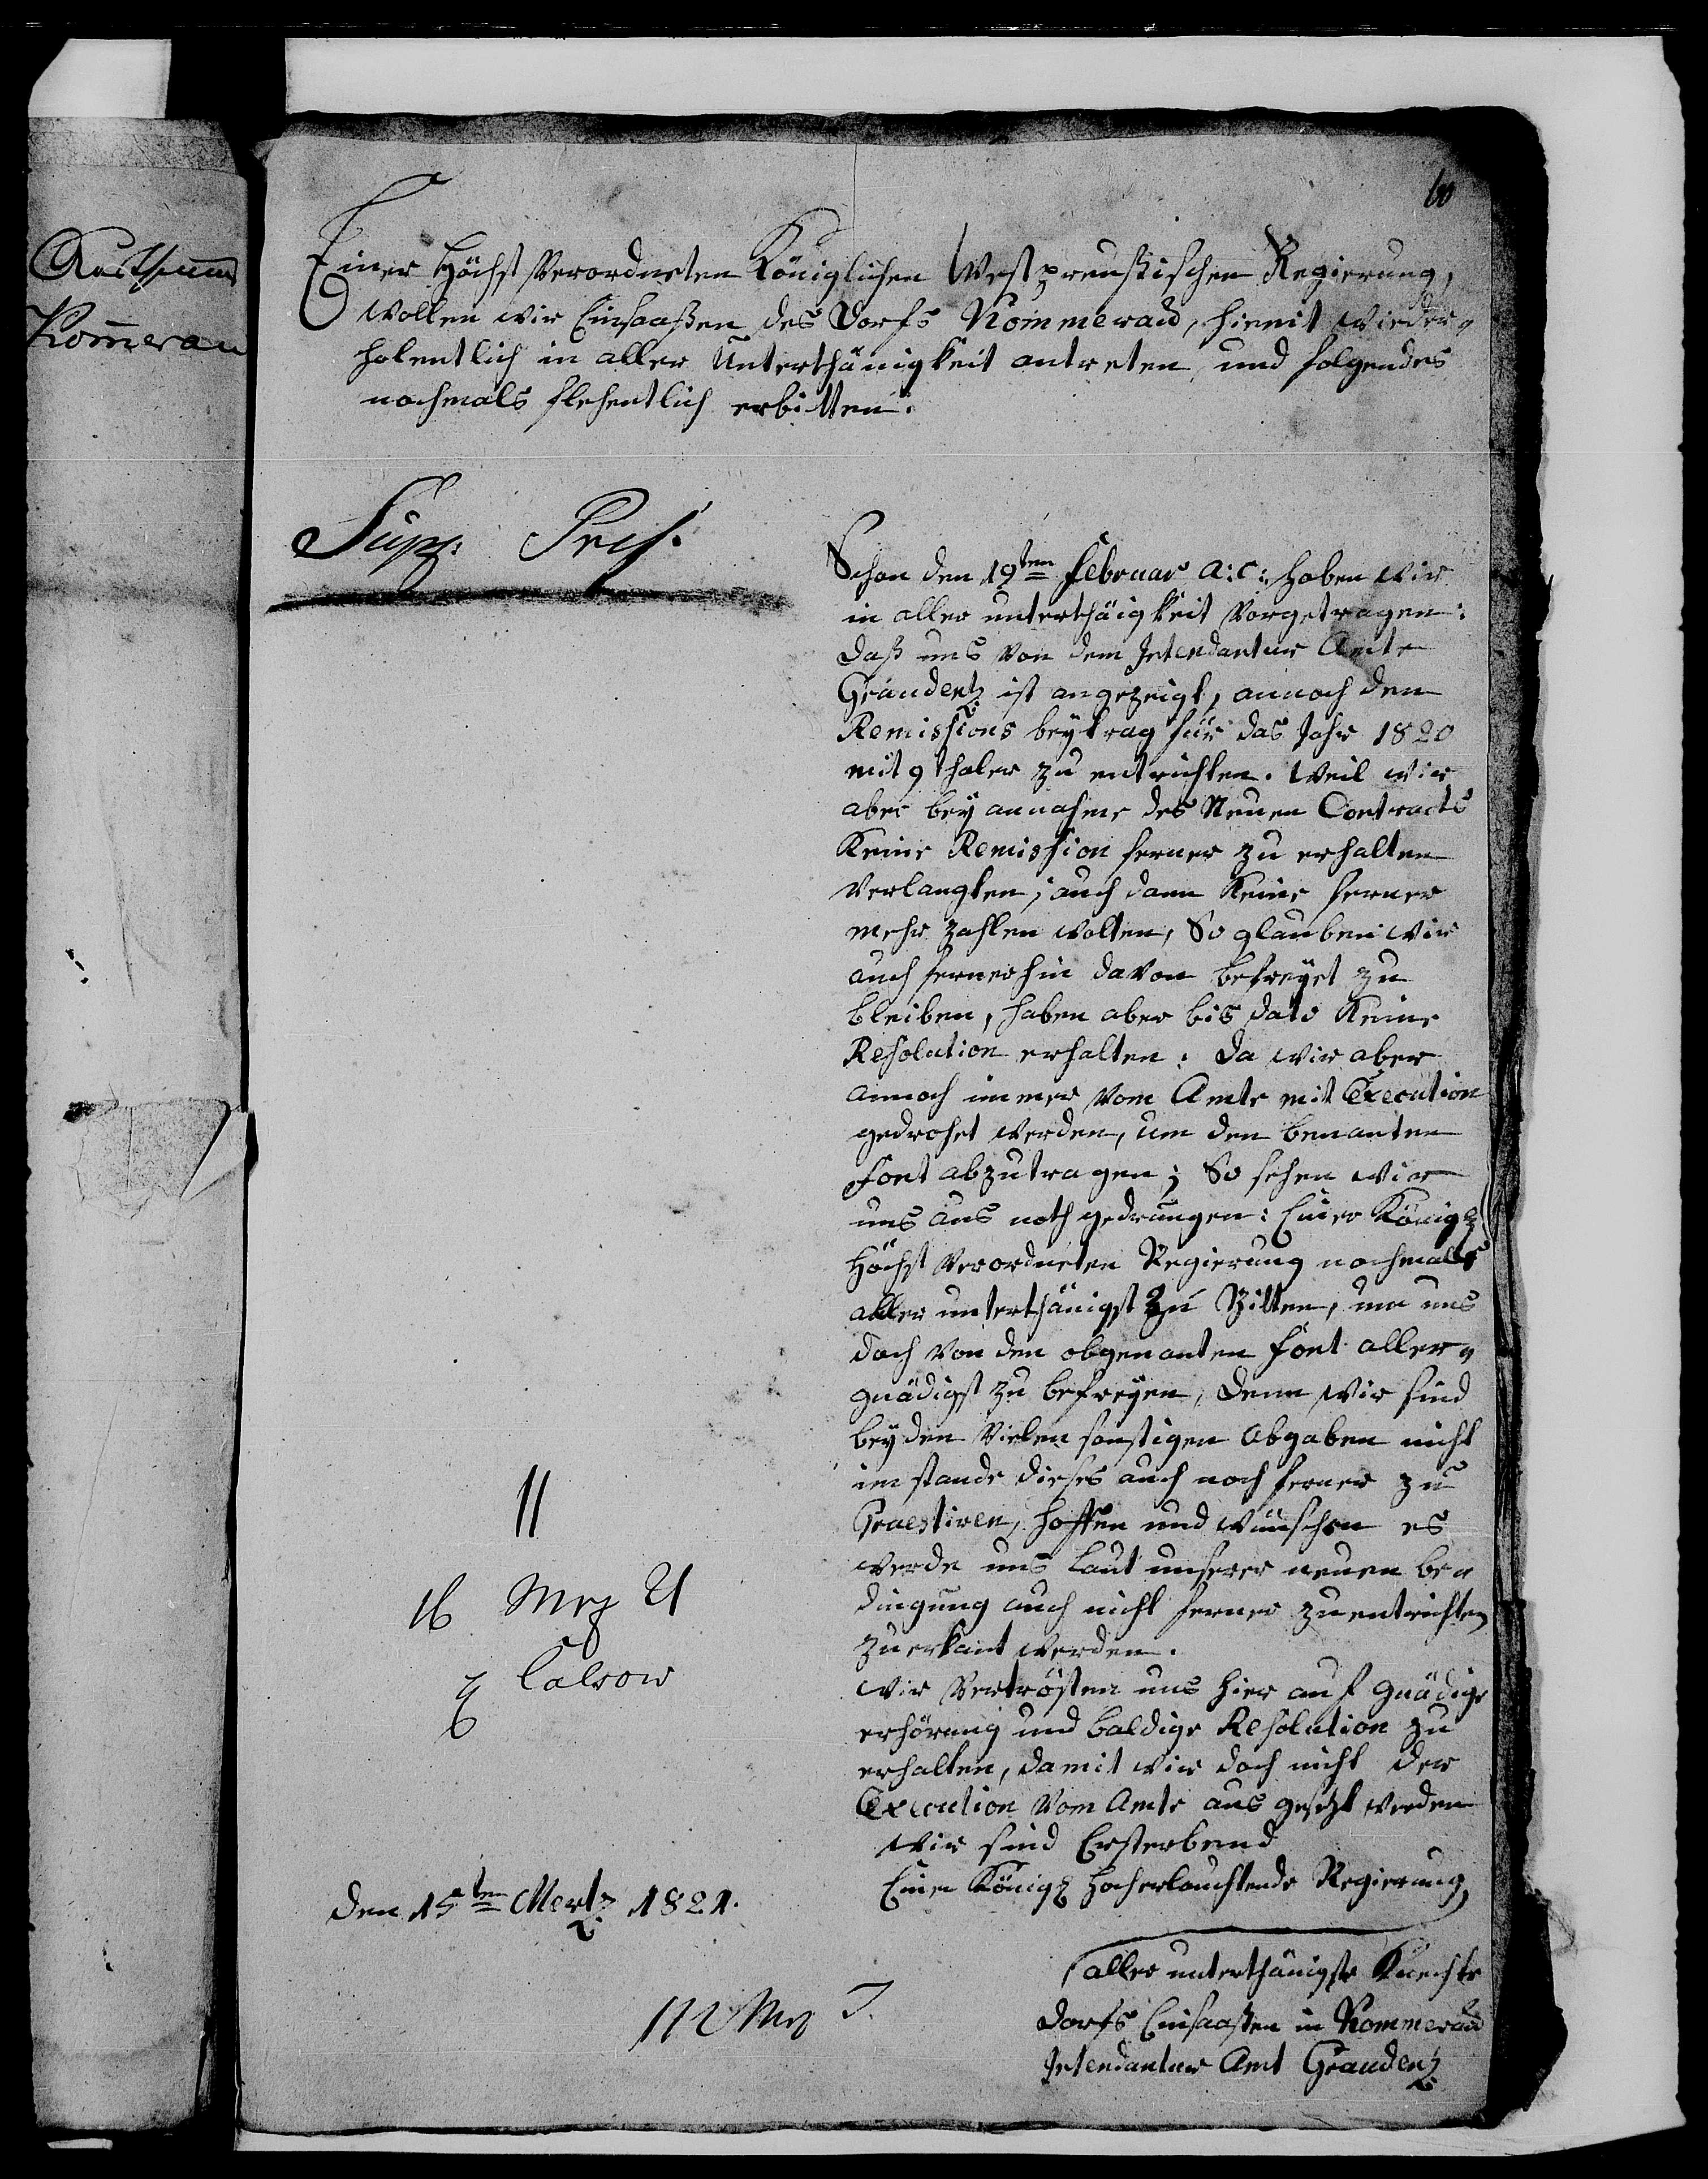 Kommerau
60
Einer Höchst Verordneten Königlichen Westpreußischen Regierung,
wollen wir Einsaaßen des Dorfs Kommerau, hiemit wieder=
holentlich in aller Unterthänigkeit antreten, und folgendes
nochmals flehentlich erbitten.
Supp: Pres.
Schon den 19ten Februar a: c: haben wir
in aller unterthäigkeit Vorgetragen:
daß uns von dem Intendantur Amte
Graudentz ist angezeigt, annoch den
Remissions beytrag für das Jahr 1820
mit 9 thaler zu entrichten. Weil wir
aber bey annahme des Neuen Contracts
Keine Remission ferner zu erhalten
Verlangten, auch dann Keine ferner
mehr zahlen wolten, So glauben wir
auch fernerhin davon befreyet zu
bleiben, haben aber bis dato Keine
Resolution erhalten. Da wir aber
annoch immer vom Amte mit Execution
gedrohet werden, um den benanten
Font abzutragen; So sehen wir
uns aus noth gedrungen: Einer Königl
Höchst Verordneten Regierung nochmals
aller unterthänigst zu Bitten, um uns
doch von den obgenanten Font aller=
gnädigst zu befreyen, denn wir sind
bey den Vielen sonstigen Abgaben nicht
im stande dieses auch noch ferner zu
Praestiren, hoffen und wünschen es
werde uns laut unserer neuen be=
dingung auch nicht ferner zu entrichten
zuerkant werden.
Wir Vertrösten uns hier auf gnädige
erhörung und baldige Resolution zu
erhalten, damit wir doch nicht der
Execution vom Amte aus gesetzt werden
wir sind Ersterbend
Einer Königl Hocherlauchtende Regierung
11
16 Mrz 21
Calsow
den 15ten Mertz 1821.
aller unterthänigste Knechte
Dorfs Einsaaßen in Kommerau
Intendantur Amt Graudentz